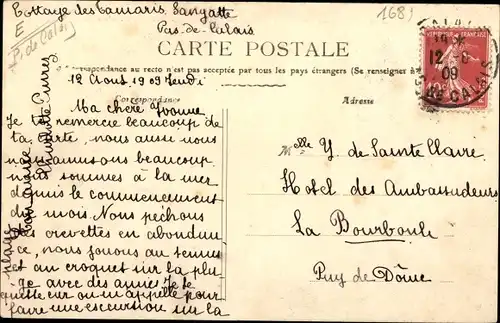 Cottage des Tamaris, Sangatte
Pas-de-Calais
E
P. de Calais
1683
CARTE POSTALE
La Correspondance au recto n'est pas acceptée par tous les pays étrangers (Se renseigner à
12 Aout 1909 Jeudi
Correspondance
Adresse
CALAIS
12 -8
09
PAS DE CALAIS
REPUBLIQUE FRANÇAISE
10
Ma chère Yvonne
Je te remercie beaucoup de
ta carte, nous aussi nous
nous amusons beaucoup
nous sommes à la mer
depuis le commencement
du mois Nous pêchons
des crevettes en abondan
ce, nous jouons au tennis
et au croquet sur la pla
ge avec des amies Je te
quitte car on m'appelle pour
faire une excursion sur la
plage
Ton amie
Melle Y. de Sainte Claire
Hotel des Ambassadeurs
La Bourboule
Puy de Dôme